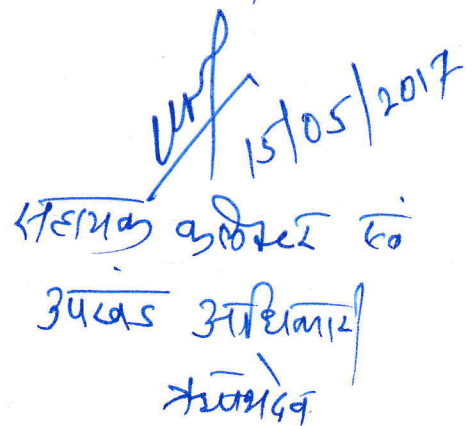 15/05/2017
सहायक कलेक्टर एवं
उपखंड अधिकारी
ऋषभदेव